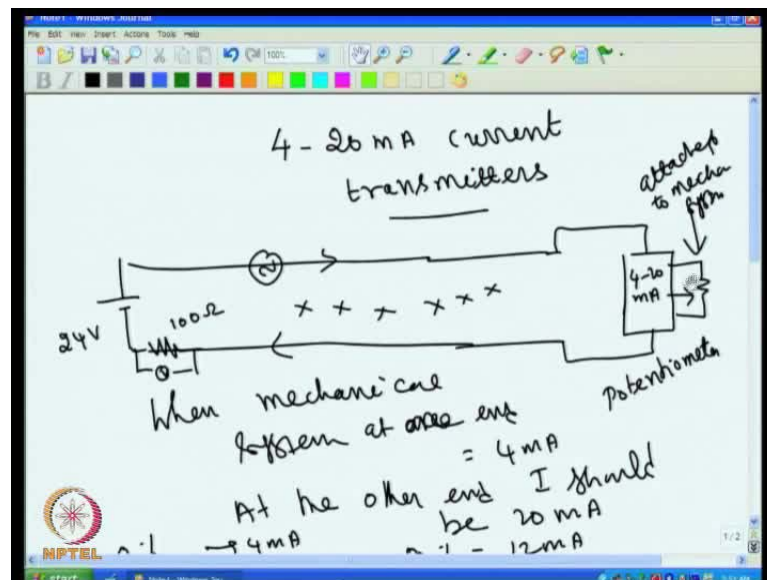 Note1 - Windows Journal
File Edit View Insert Actions Tools Help
100%
B I
4 - 20 mA current
transmitters
attached
to mecha
system
4-20
mA
24V
100Ω
Potentiometer
When mechanical
system at one end
= 4mA
At the other end I should
be 20 mA
→ 4mA
= 12mA
NPTEL
1/2
start
Note1 - Windows Jou...